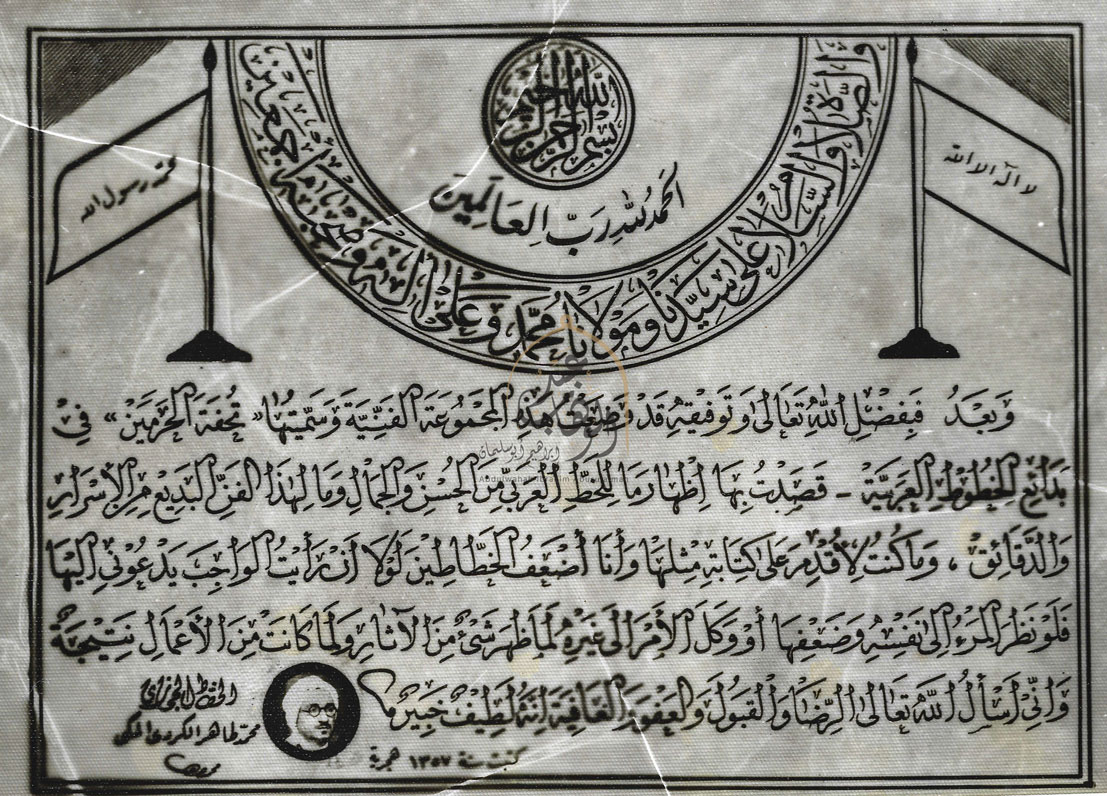 بسم الله الرحمن الرحيم
الحمد لله رب العالمين
والصلاة والسلام على سيدنا ومولانا محمد وعلى آله وصحبه أجمعين
لا اله الا الله
محمد رسول الله
وَبَعدُ فَبِفَضْلِ اللهِ تَعَالىٰ وَتَوفيقِهِ قَدْ وَضَعْتُ هٰذِهِ المَجْمُوعَةَ الفَنِيَّةَ وَسَمَّيتُهَا «تُحفَةَ الحَرَمَين» فِيْ
بَدَائِعِ الخُطُوطِ العَرَبِيَّةِ - قَصَدْتُ بِهَا إظْهَارَ مَا لِلْخَطِّ العَرَبيِّ مِنَ الحُسْنِ وَالجَمَالِ وَمَا لِهٰذَا الفَنِّ البَدِيعِ مِنَ الأَسْرَارِ
وَالدَّقَائِقِ ، وَمَا كُنْتُ لِأُقْدِمَ عَلىٰ كِتَابَةِ مِثْلِهَا وَأَنَا أَضْعَفُ الخَطَّاطِيْنَ لَوْلَا أَنْ رَأَيْتُ الوَاجِبَ يَدْعُونِي إِلَيْهَا
فَلَوْ نَظَرَ المَرْءُ إِلىٰ نَفْسِهِ وَضَعْفِهَا أَوْ وَكَلَ الأَمْرَ إِلىٰ غَيْرِهِ لَمَا ظَهَرَ شَىْءٌ مِنَ الآثَارِ وَلَمَا كَانَتْ مِنَ الأَعْمَالِ نَتِيْجَةٌ
وَإِنِّي أَسْأَلُ اللهَ تَعَالىٰ الرِّضَا وَالقَبُولَ وَالعَفْوَ وَالعَافِيَةَ إِنَّهُ لَطِيفٌ خَبِيرٌ
محمد طاهر الكردى المكى
كتبت سنة ١٣٥٧ هجرية
ابراهيم ابوسليمان